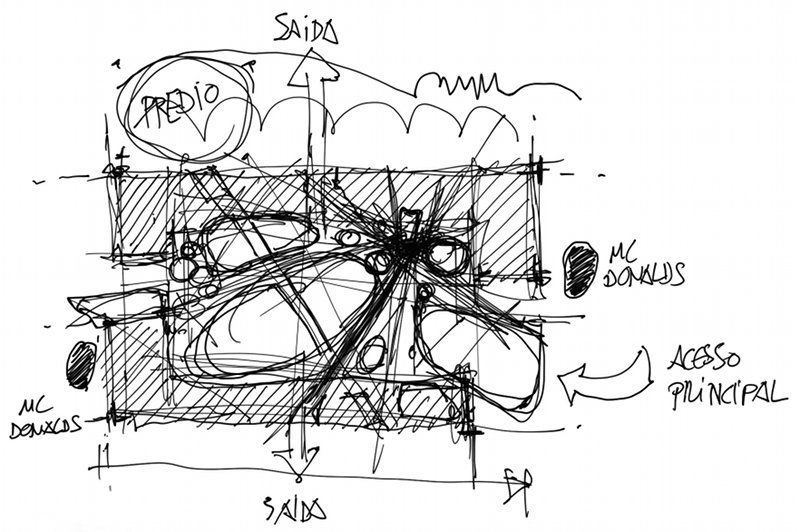 SAIDA
PREDIO
MC
DONALDS
ACESSO
PRINCIPAL
MC
DONALDS
SAIDA